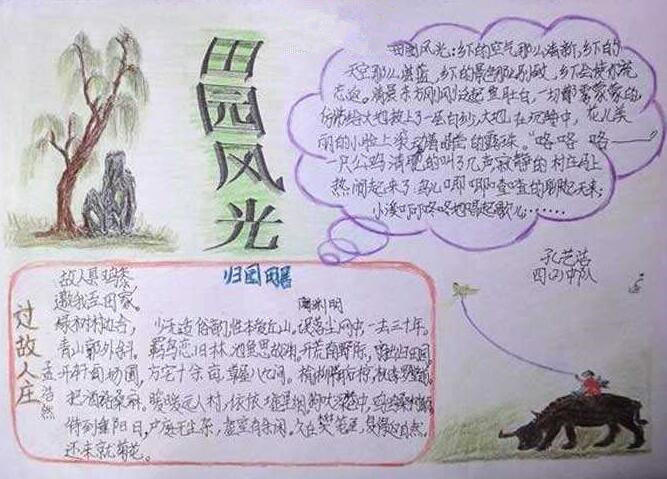 田园风光
田园风光:乡下的空气那么清新,乡下的
天空那么湛蓝,乡下的景色那么别致,乡下会使你流
连忘返。清晨东方刚刚泛起鱼肚白,一切都雾蒙蒙的,
仿佛给大地披上了一层白纱,大地在沉睡中,花儿美
丽的小脸上滚动着晴莹的露珠。"咯咯 咯——"
一只公鸡清脆的叫了几声寂静的村庄马上
热闹起来了鸟儿唧唧喳喳的
小溪叮叮咚咚地唱起歌儿······
孔艺洁
四(2)中队
过故人庄
孟浩然
故人具鸡黍,
邀我至田家。
绿树村边合,
青山郭外斜。
开轩面场圃,
把酒话桑麻。
待到重阳日,
还来就菊花。
归园田居
陶渊明
少无适俗韵,性本爱丘山。误落尘网中,一去三十年。
羁鸟恋旧林,池鱼思故渊。开荒南野际,守拙归园田。
方宅十余亩,草屋八九间。榆柳荫后檐,桃李罗堂前。
暧暧远人村,依依墟里烟。狗吠深巷中,鸡鸣桑树颠。
户庭无尘杂,虚室有余闲。久在樊笼里,复得返自然。